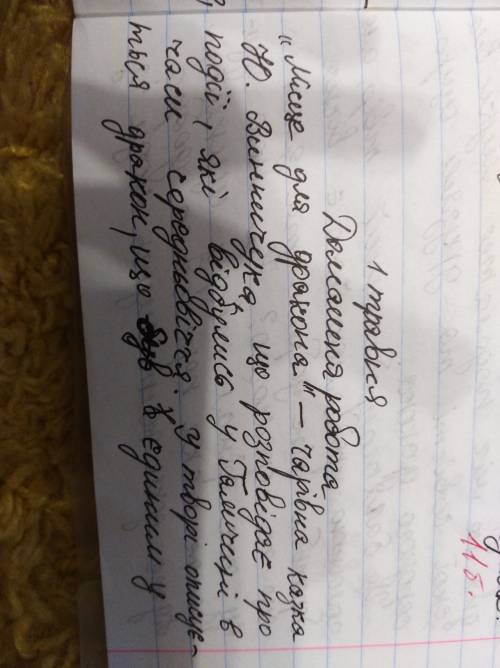 1 травня
Домашня робота
"Місце для дракона" — чарівна казка
Ю. Винничука, що розповідає про
події, які відбулись у Галичині в
часи середньовіччя. У творі описує-
ться дракон, що був є єдиним у
11б.